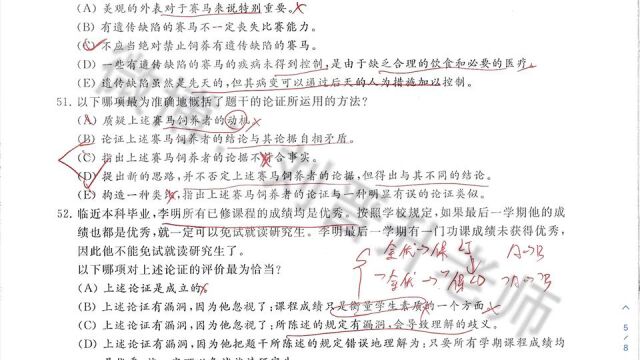 (A) 美观的外表对于赛马来说特别重要。
(B) 有遗传缺陷的赛马不一定丧失比赛能力。
(C) 不应当绝对禁止饲养有遗传缺陷的赛马。
(D) 一些有遗传缺陷的赛马的疾病未得到控制,是由于缺乏合理的饮食和必要的医疗。
(E) 遗传缺陷虽然是先天的,但其病变可以通过后天的人为措施加以控制。
51. 以下哪项最为准确地概括了题干的论证所运用的方法?
(A) 质疑上述赛马饲养者的动机。
(B) 论证上述赛马饲养者的结论与其论据自相矛盾。
(C) 指出上述赛马饲养者的论据不符合事实。
(D) 提出新的思路,并不否定上述赛马饲养者的论据,但得出与其不同的结论。
(E) 构造一种类比,指出上述赛马饲养者的论证与一种明显有误的论证类似。
52. 临近本科毕业,李明所有已修课程的成绩均是优秀。按照学校规定,如果最后一学期他的成
绩也都是优秀,就一定可以免试就读研究生。李明最后一学期有一门功课成绩未获得优秀,
因此他不能免试就读研究生了。
以下哪项对上述论证的评价最为恰当?
(A) 上述论证是成立的。
(B) 上述论证有漏洞,因为他忽视了:课程成绩只是衡量学生素质的一个方面。
(C) 上述论证有漏洞,因为他忽视了:所陈述的规定有漏洞,会导致理解的歧义。
(D) 上述论证有漏洞,因为他把题干所陈述的规定错误地理解为:只要所有学期课程成绩均
微博:刘晋升老师
A→B
¬A→¬B
5/8